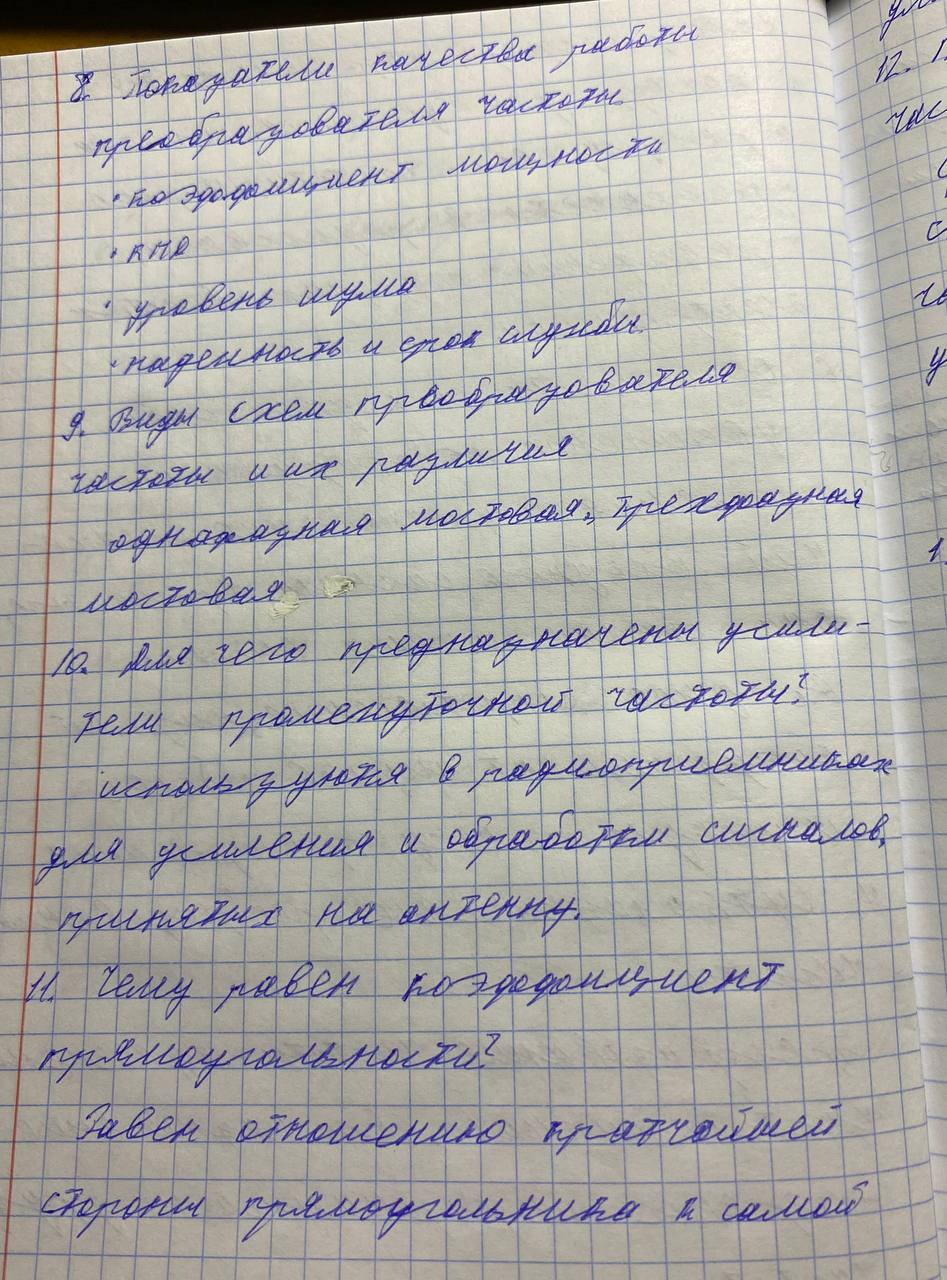 8. Показатели качества работы
преобразователя частоты
• коэффициент мощности
• КПД
• уровень шума
• надежность и срок службы.
9. Виды схем преобразователя
частоты и их различия
однафазная мостовая, трехфазная
мостовая
10. Для чего предназначены усили-
тели промежуточной частоты?
используются в радиоприемниках
для усиления и обработки сигналов,
принятых на антенну.
11. Чему равен коэффициент
прямоугольности?
Равен отношению кратчайшей
стороны прямоугольника к самой
12.
час
у
1.